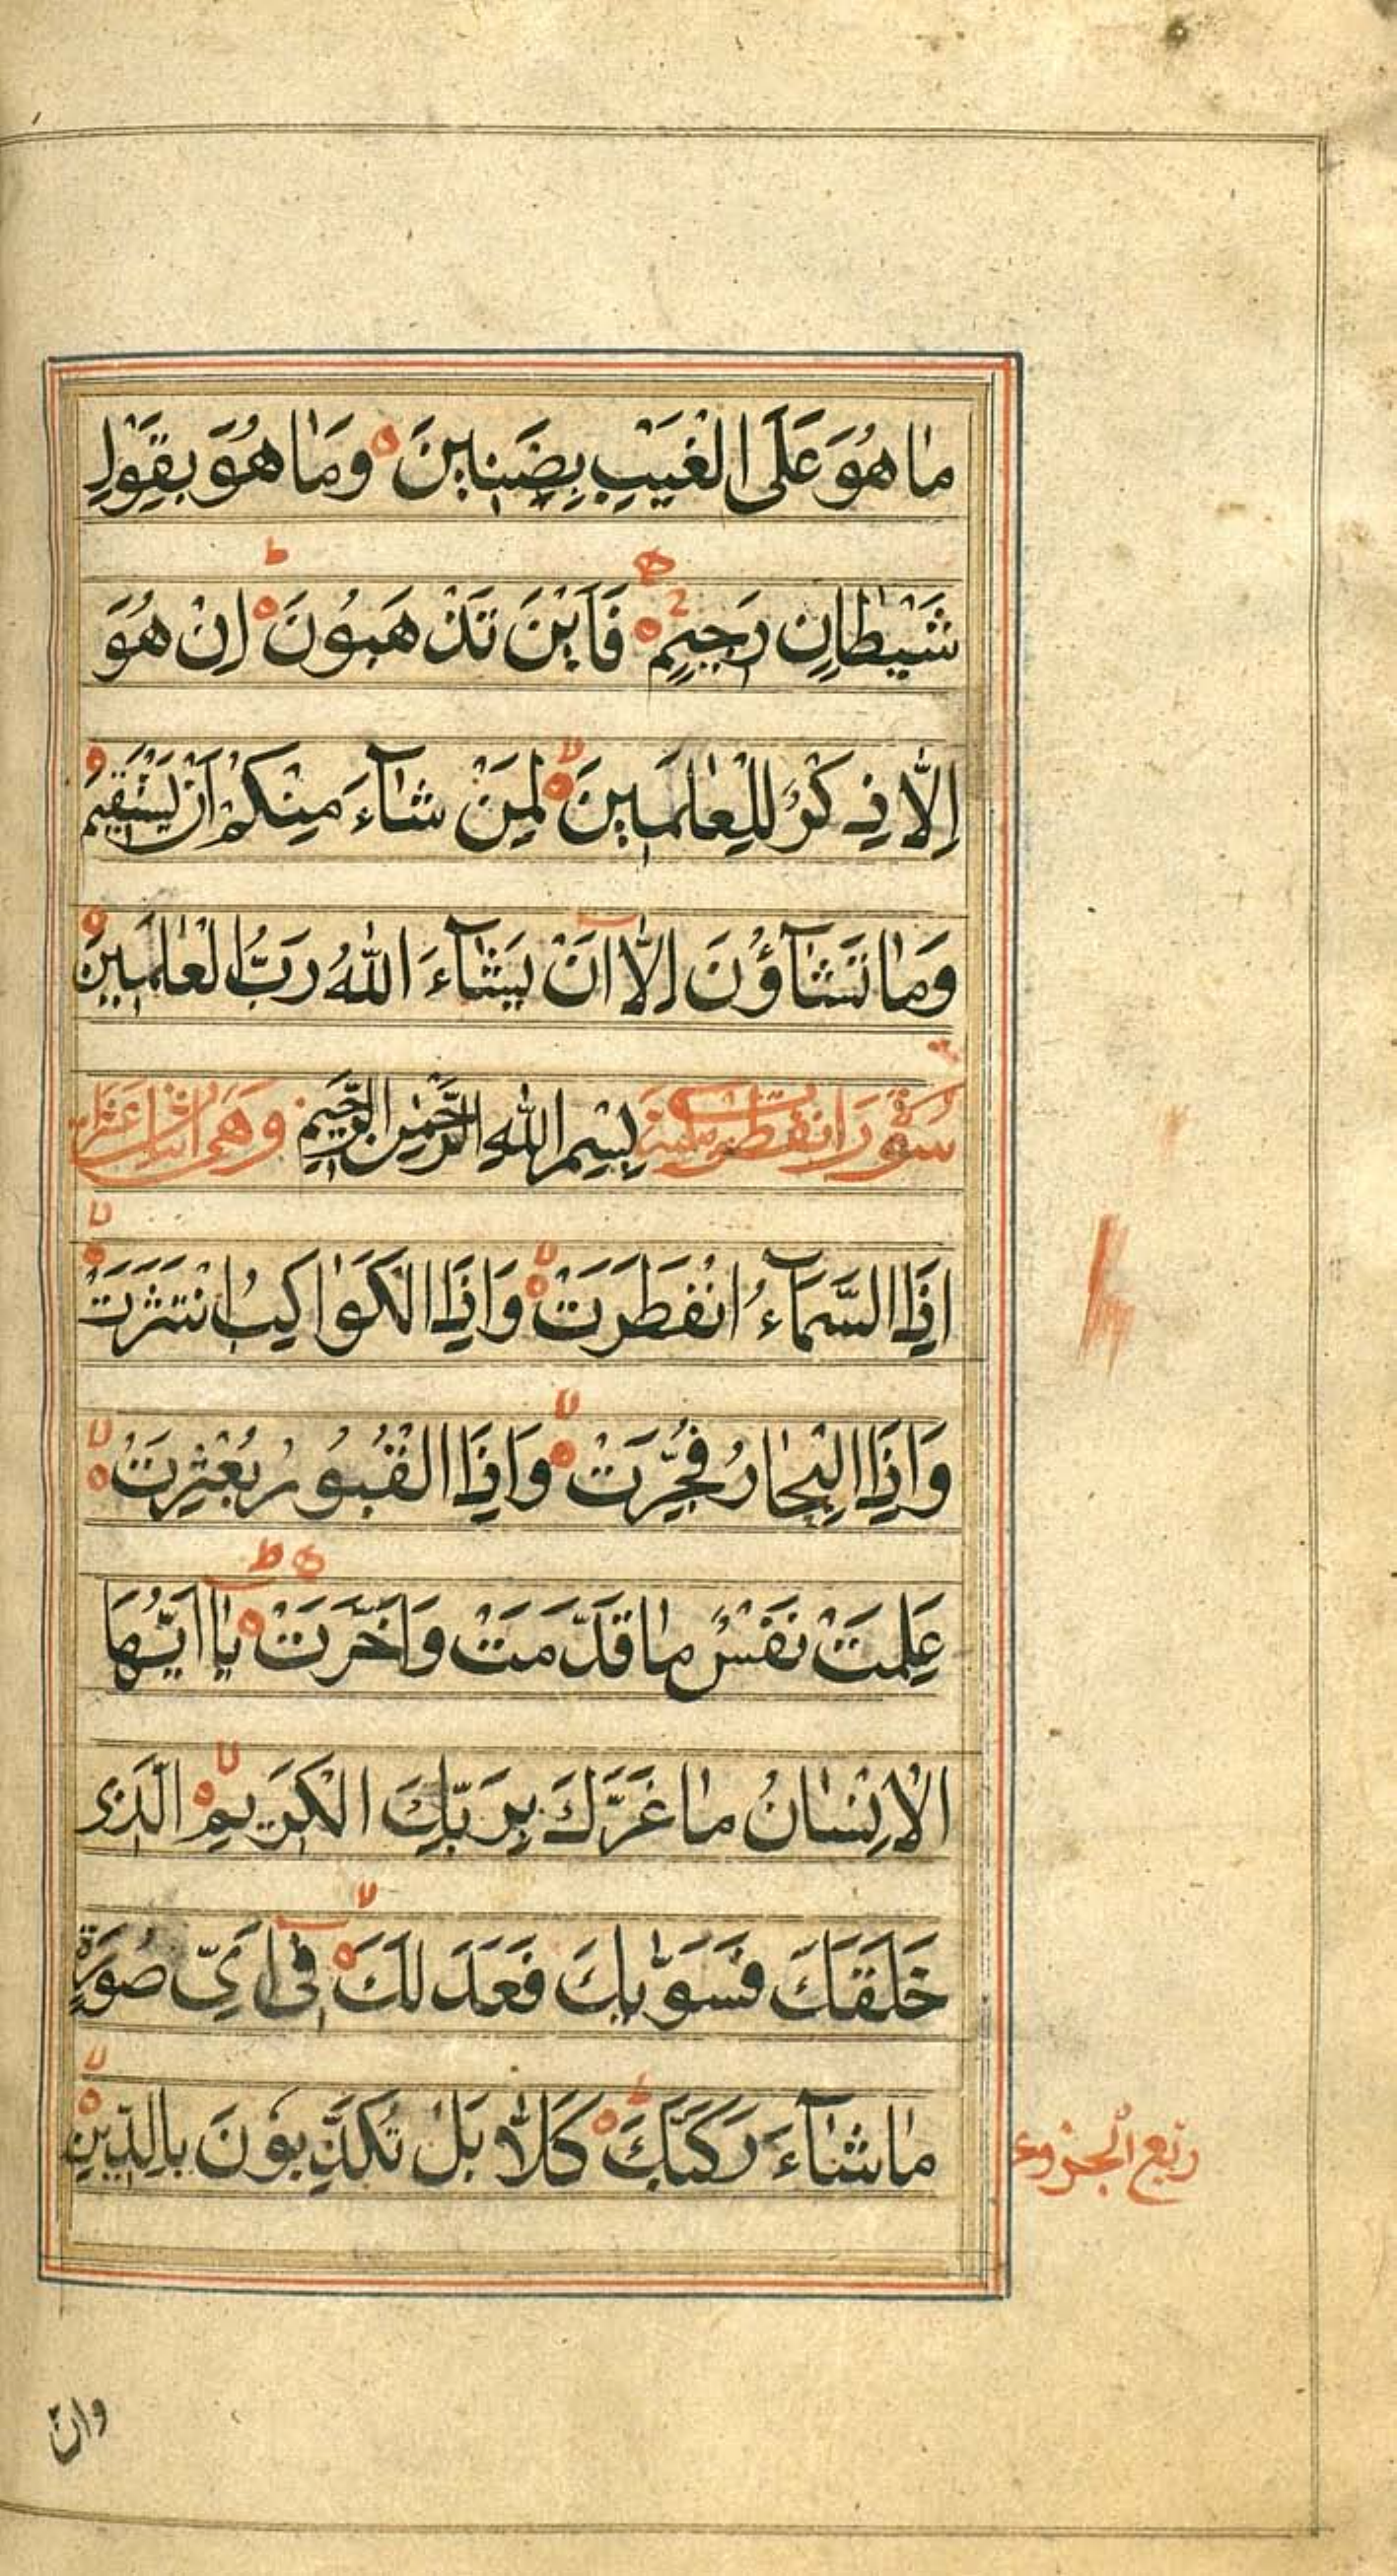 مَا هُوَ عَلَى الْغَيْبِ بِضَنِينَ وَمَا هُوَ بِقَوْلِ
شَيْطَانٍ رَجِيمٍ فَاَيْنَ تَذْهَبُونَ اِنْ هُوَ
اِلَّا ذِكْرٌ لِلْعٰلَمِينَ لِمَنْ شَآءَ مِنْكُمْ اَنْ يَسْتَقِيمَ
وَمَا تَشَآؤُنَ اِلَّا اَنْ يَشَآءَ اللّٰهُ رَبُّ الْعٰلَمِينَ
سورة انفطرت بِسْمِ اللّٰهِ الرَّحْمٰنِ الرَّحِيمِ وَهِىَ
اِذَا السَّمَآءُ انْفَطَرَتْ وَاِذَا الْكَوَاكِبُ انْتَثَرَتْ
وَاِذَا الْبِحَارُ فُجِّرَتْ وَاِذَا الْقُبُورُ بُعْثِرَتْ
عَلِمَتْ نَفْسٌ مَا قَدَّمَتْ وَاَخَّرَتْ يَا اَيُّهَا
الْاِنْسَانُ مَا غَرَّكَ بِرَبِّكَ الْكَرِيمِ الَّذِى
خَلَقَكَ فَسَوّٰيكَ فَعَدَلَكَ فِى اَىِّ صُورَةٍ
مَا شَآءَ رَكَّبَكَ كَلَّا بَلْ تُكَذِّبُونَ بِالدِّينِ
ربع الجزو
وانّ